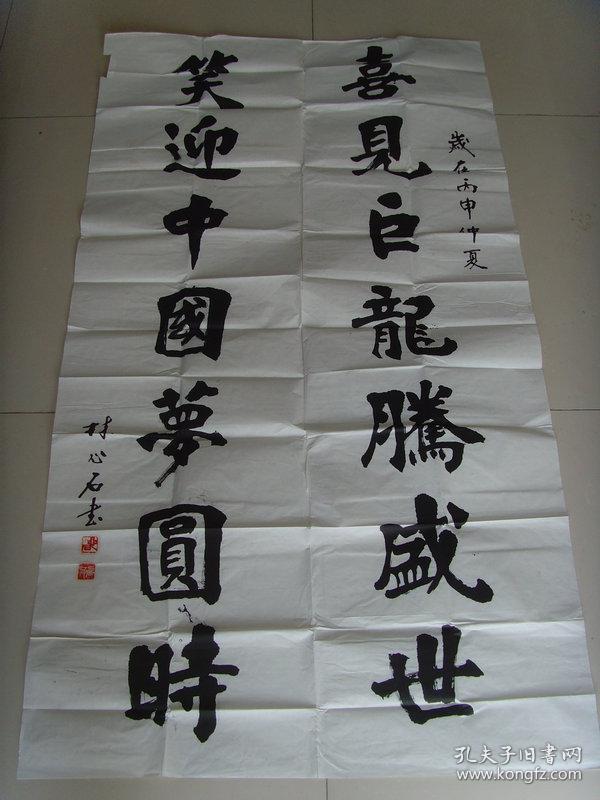 歲在丙申仲夏
喜見巨龍騰盛世
笑迎中國夢圓時
村心石书
孔夫子旧書网
www.kongfz.com